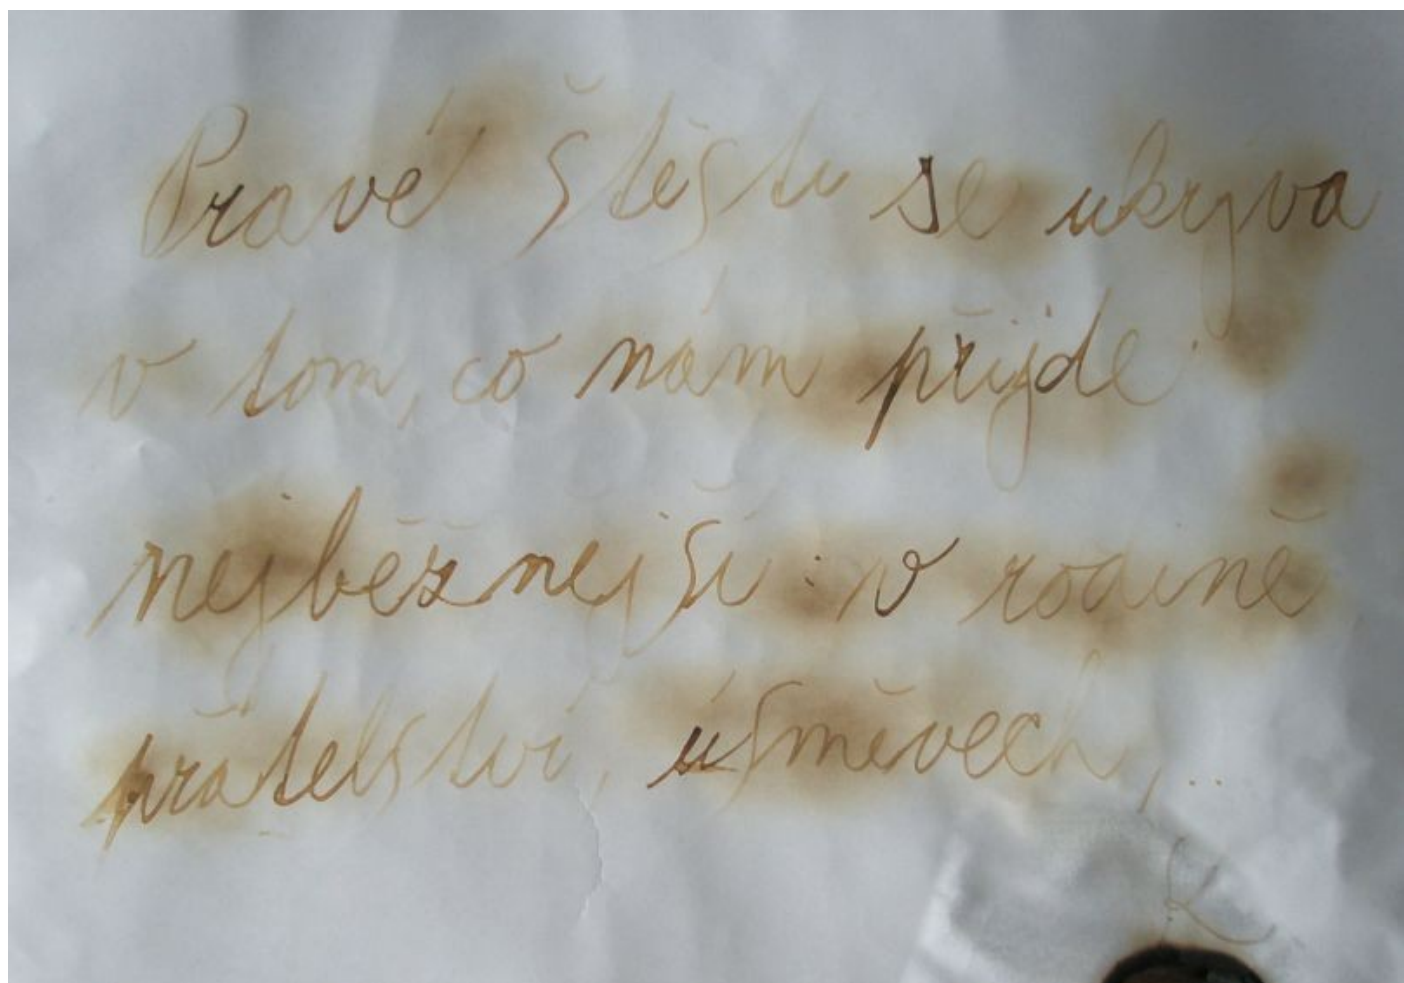 Pravé štěstí se ukrývá
v tom, co nám přijde
nejběžnější: v rodině
přátelství, úsměvech,..
K